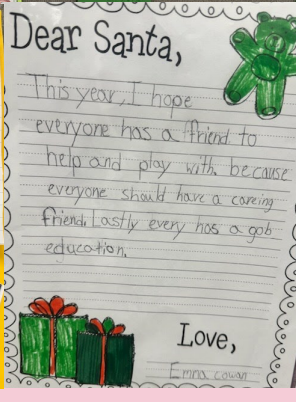 Dear Santa,
This year, I hope
everyone has a friend to
help and play with, because
everyone should have a careing
friend. Lastly every has a gob
education.
Love,
Emma cowan